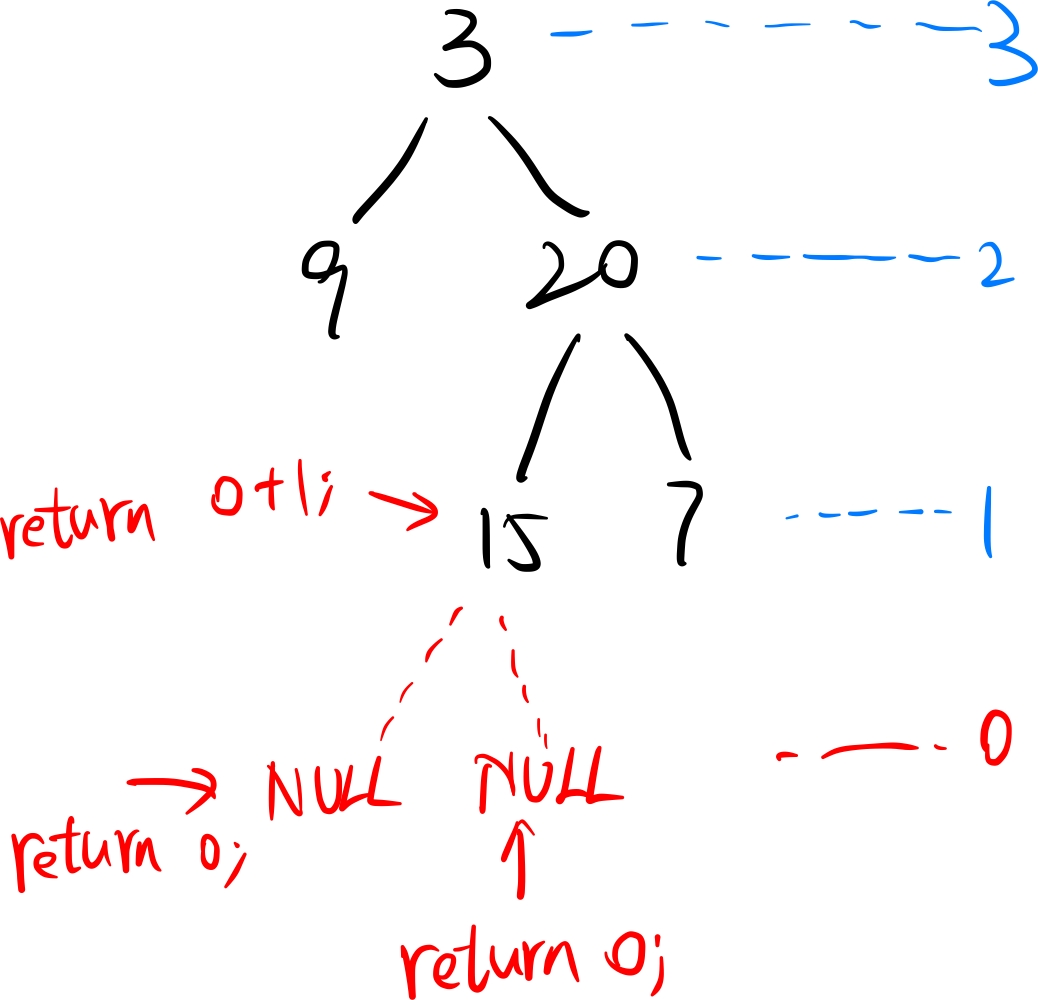 3 3
9 20 2
return 0+1; 15 7 1
NULL NULL 0
return 0;
return 0;